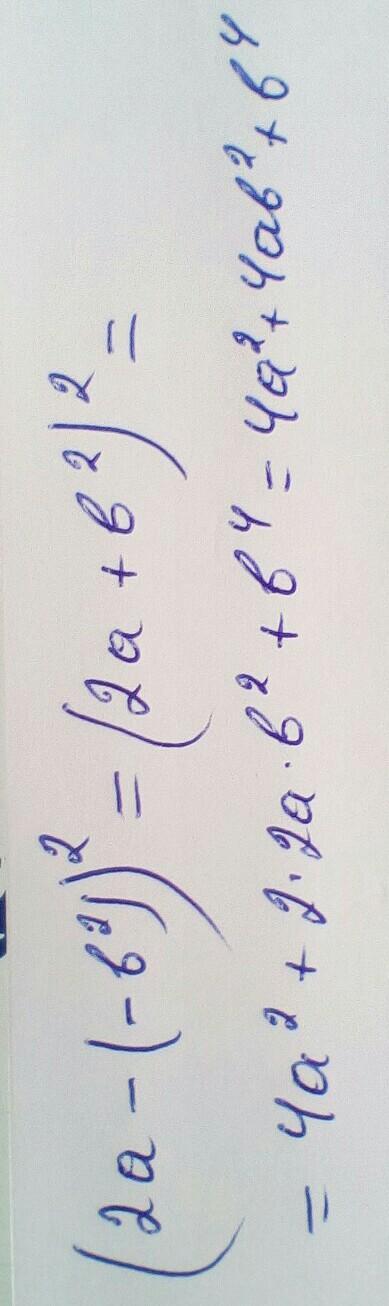 (2a - (-b²))² = (2a + b²)² =
= 4a² + 2·2a·b² + b⁴ = 4a² + 4ab² + b⁴